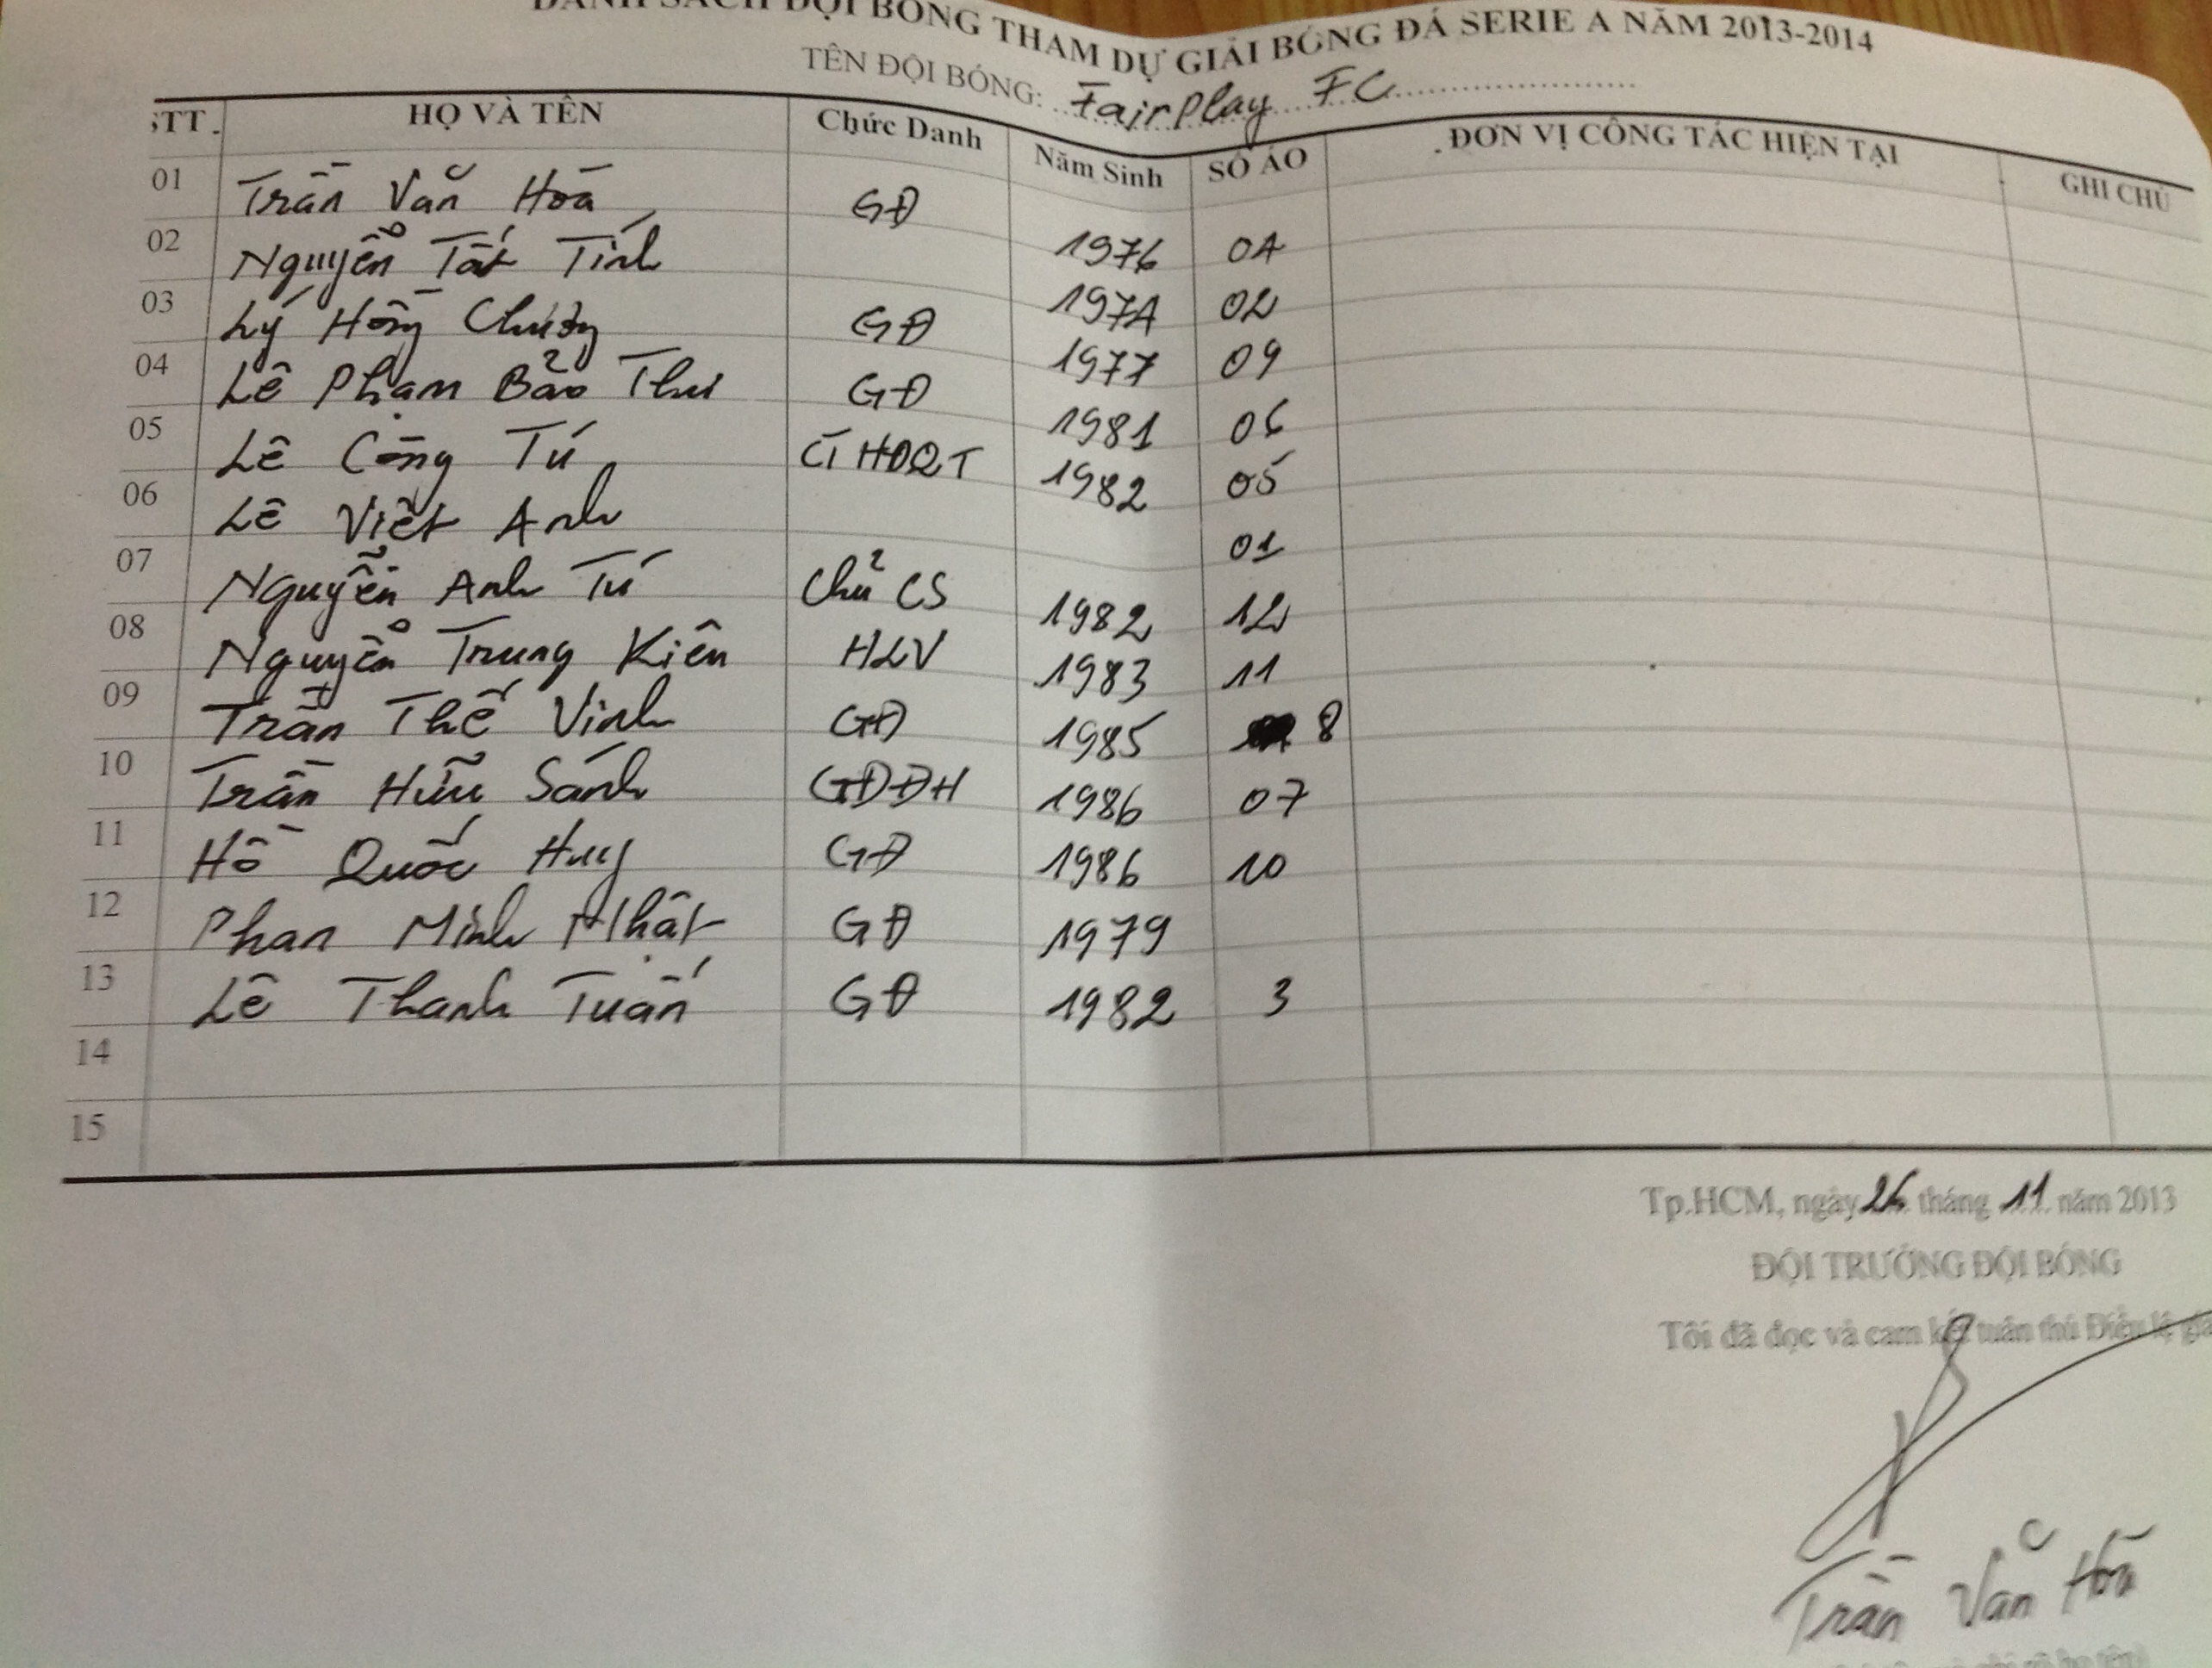 DANH SÁCH ĐỘI BÓNG THAM DỰ GIẢI BÓNG ĐÁ SERIE A NĂM 2013-2014
TÊN ĐỘI BÓNG: FairPlay FC
STT HỌ VÀ TÊN Chức Danh Năm Sinh SỐ ÁO ĐƠN VỊ CÔNG TÁC HIỆN TẠI GHI CHÚ
01 Trần Văn Hoà GĐ 1976 04
02 Nguyễn Tất Tính 1974 02
03 Lý Hồng Chương GĐ 1977 09
04 Lê Phạm Bảo Thư GĐ 1981 06
05 Lê Công Tú CT HĐQT 1982 05
06 Lê Việt Anh 01
07 Nguyễn Anh Tú Chủ CS 1982 12
08 Nguyễn Trung Kiên HLV 1983 11
09 Trần Thế Vinh GĐ 1985 8
10 Trần Hữu Sánh GĐĐH 1986 07
11 Hồ Quốc Huy GĐ 1986 10
12 Phan Minh Nhật GĐ 1979
13 Lê Thanh Tuấn GĐ 1982 3
14
15
Tp.HCM, ngày 26 tháng 11 năm 2013
ĐỘI TRƯỞNG ĐỘI BÓNG
Tôi đã đọc và cam kết tuân thủ Điều lệ
Trần Văn Hoà